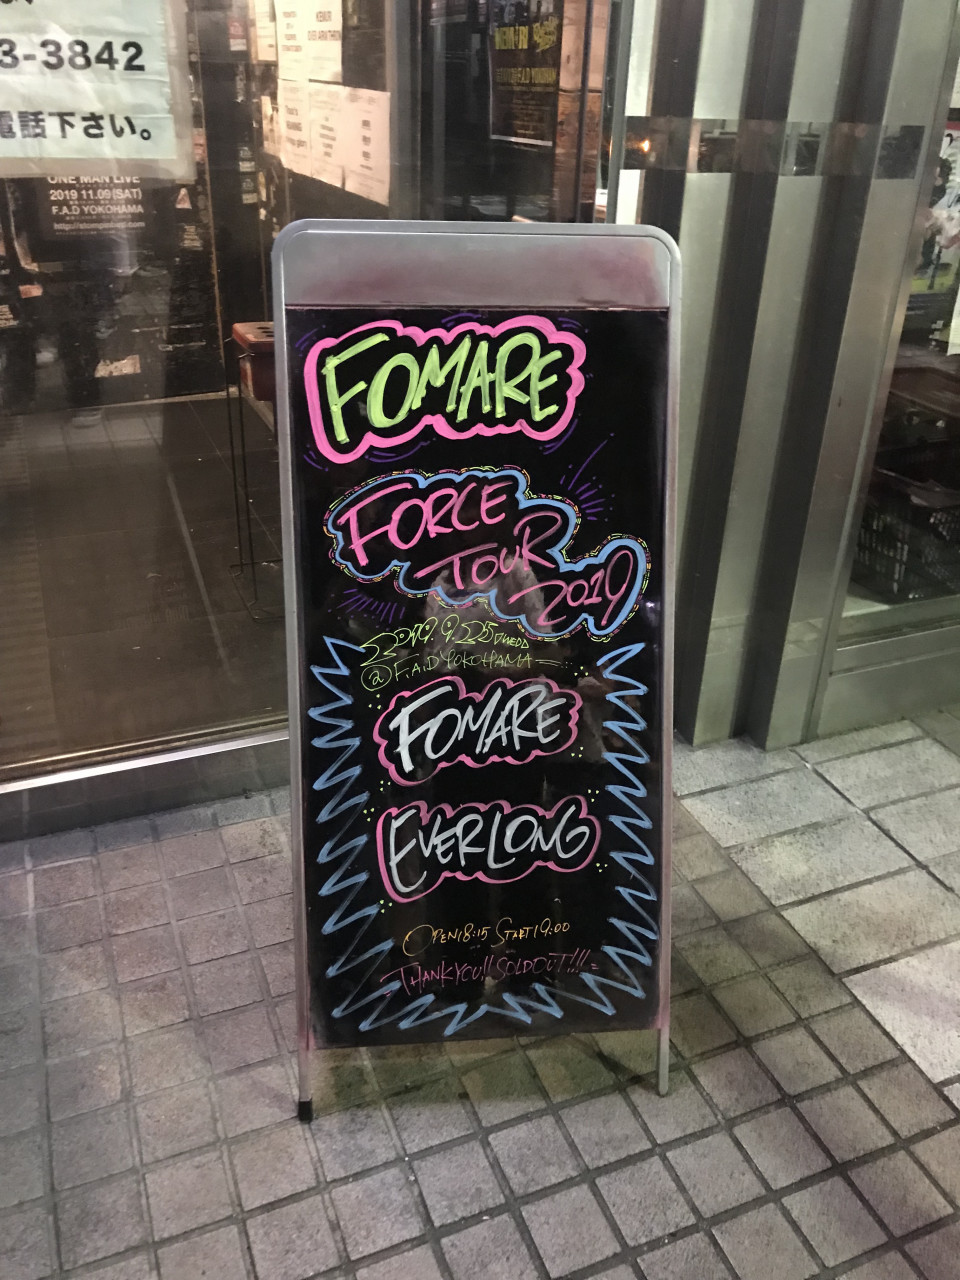 3-3842
電話下さい。
ONE MAN LIVE
2019 11.09(SAT)
F.A.D YOKOHAMA
FOMARE
FORCE
TOUR
2019
2019.9.25 WED
@F.A.D YOKOHAMA
FOMARE
EVERLONG
OPEN18:15 START19:00
THANK YOU!! SOLDOUT!!!